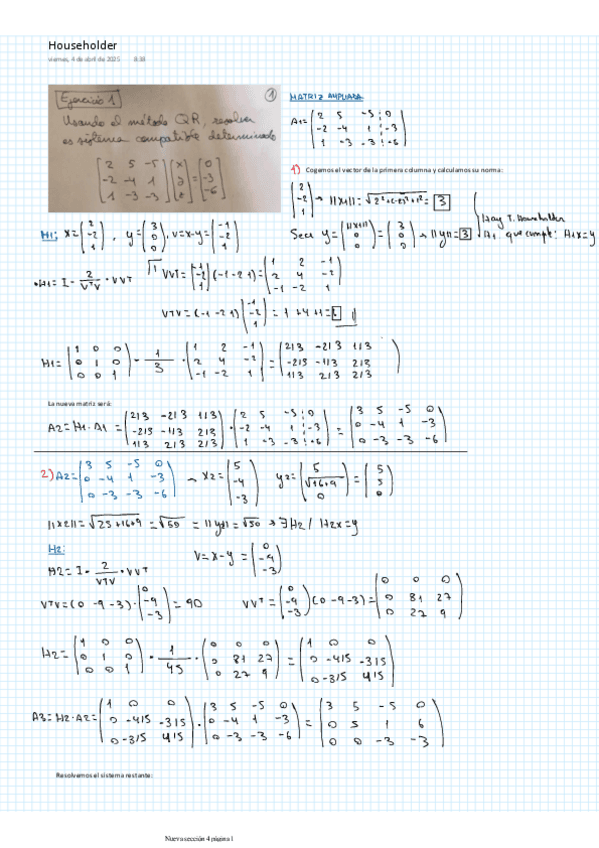 Householder
viernes, 4 de abril de 2025 8:38
Ejercicio 1
1
Usando el método QR, resolver
es sistema compatible determinado
[2 5 -5; -2 -4 1; 1 -3 -3] [x; y; z] [0; =-3; -6]
MATRIZ AMPLIADA
A1=(2 5 -5 0; -2 -4 1 -3; 1 -3 -3 -6)
1) Cogemos el vector de la primera columna y calculamos su norma:
(2; -2; 1) → ||x1||: √2²+(-2)²+1² = 3
Sea y=(||x1||; 0; 0)=(3; 0; 0) → ||y||=3
Hay T. Householder
H1 que cumpt: H1x=y
H1: x=(2; -2; 1), y=(3; 0; 0), v=x-y=(-1; -2; 1)
H1= I - 2/VᵀV · VVᵀ
VVᵀ=(-1; -2; 1)(-1 -2 1)=(1 2 -1; 2 4 -2; -1 -2 1)
VᵀV=(-1 -2 1)(-1; -2; 1)= 1+4+1=6
H1=(1 0 0; 0 1 0; 0 0 1) - 1/3 · (1 2 -1; 2 4 -2; -1 -2 1)=(2/3 -2/3 1/3; -2/3 -1/3 2/3; 1/3 2/3 2/3)
La nueva matriz será:
A2= H1·A1=(2/3 -2/3 1/3; -2/3 -1/3 2/3; 1/3 2/3 2/3)·(2 5 -5 0; -2 -4 1 -3; 1 -3 -3 -6)=(3 5 -5 0; 0 -4 1 -3; 0 -3 -3 -6)
2) A2=(3 5 -5 0; 0 -4 1 -3; 0 -3 -3 -6) → x2=(5; -4; -3) y2=(5; √16+9; 0)=(5; 5; 0)
||x2||=√25+16+9=√50 = ||y||=√50 → ∃H2/ H2x=y
H2:
V=x-y=(0; -9; -3)
H2=I· 2/VᵀV · VVᵀ
VᵀV=(0 -9 -3)·(0; -9; -3)=90
VVᵀ=(0; -9; -3)(0 -9 -3)=(0 0 0; 0 81 27; 0 27 9)
H2=(1 0 0; 0 1 0; 0 0 1) · 1/45 · (0 0 0; 0 81 27; 0 27 9)=(1 0 0; 0 -4/5 -3/5; 0 -3/5 4/5)
A3=H2·A2=(1 0 0; 0 -4/5 -3/5; 0 -3/5 4/5)·(3 5 -5 0; 0 -4 1 -3; 0 -3 -3 -6)=(3 5 -5 0; 0 5 1 6; 0 0 -3 -3)
Resolvemos el sistema restante:
Nueva sección 4 página 1